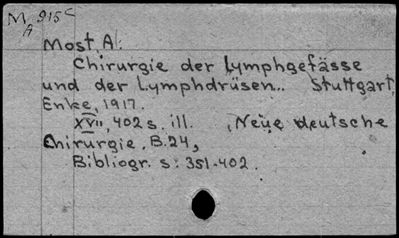 M 915c
A
Most, A.:
Chirurgie der Lymphgefässe
und der Lymphdrüsen.. Stuttgart,
Enke, 1917.
XVII, 402 s. ill. , Neue deutsche
Chirurgie. B. 24,
Bibliogr. s: 351-402.